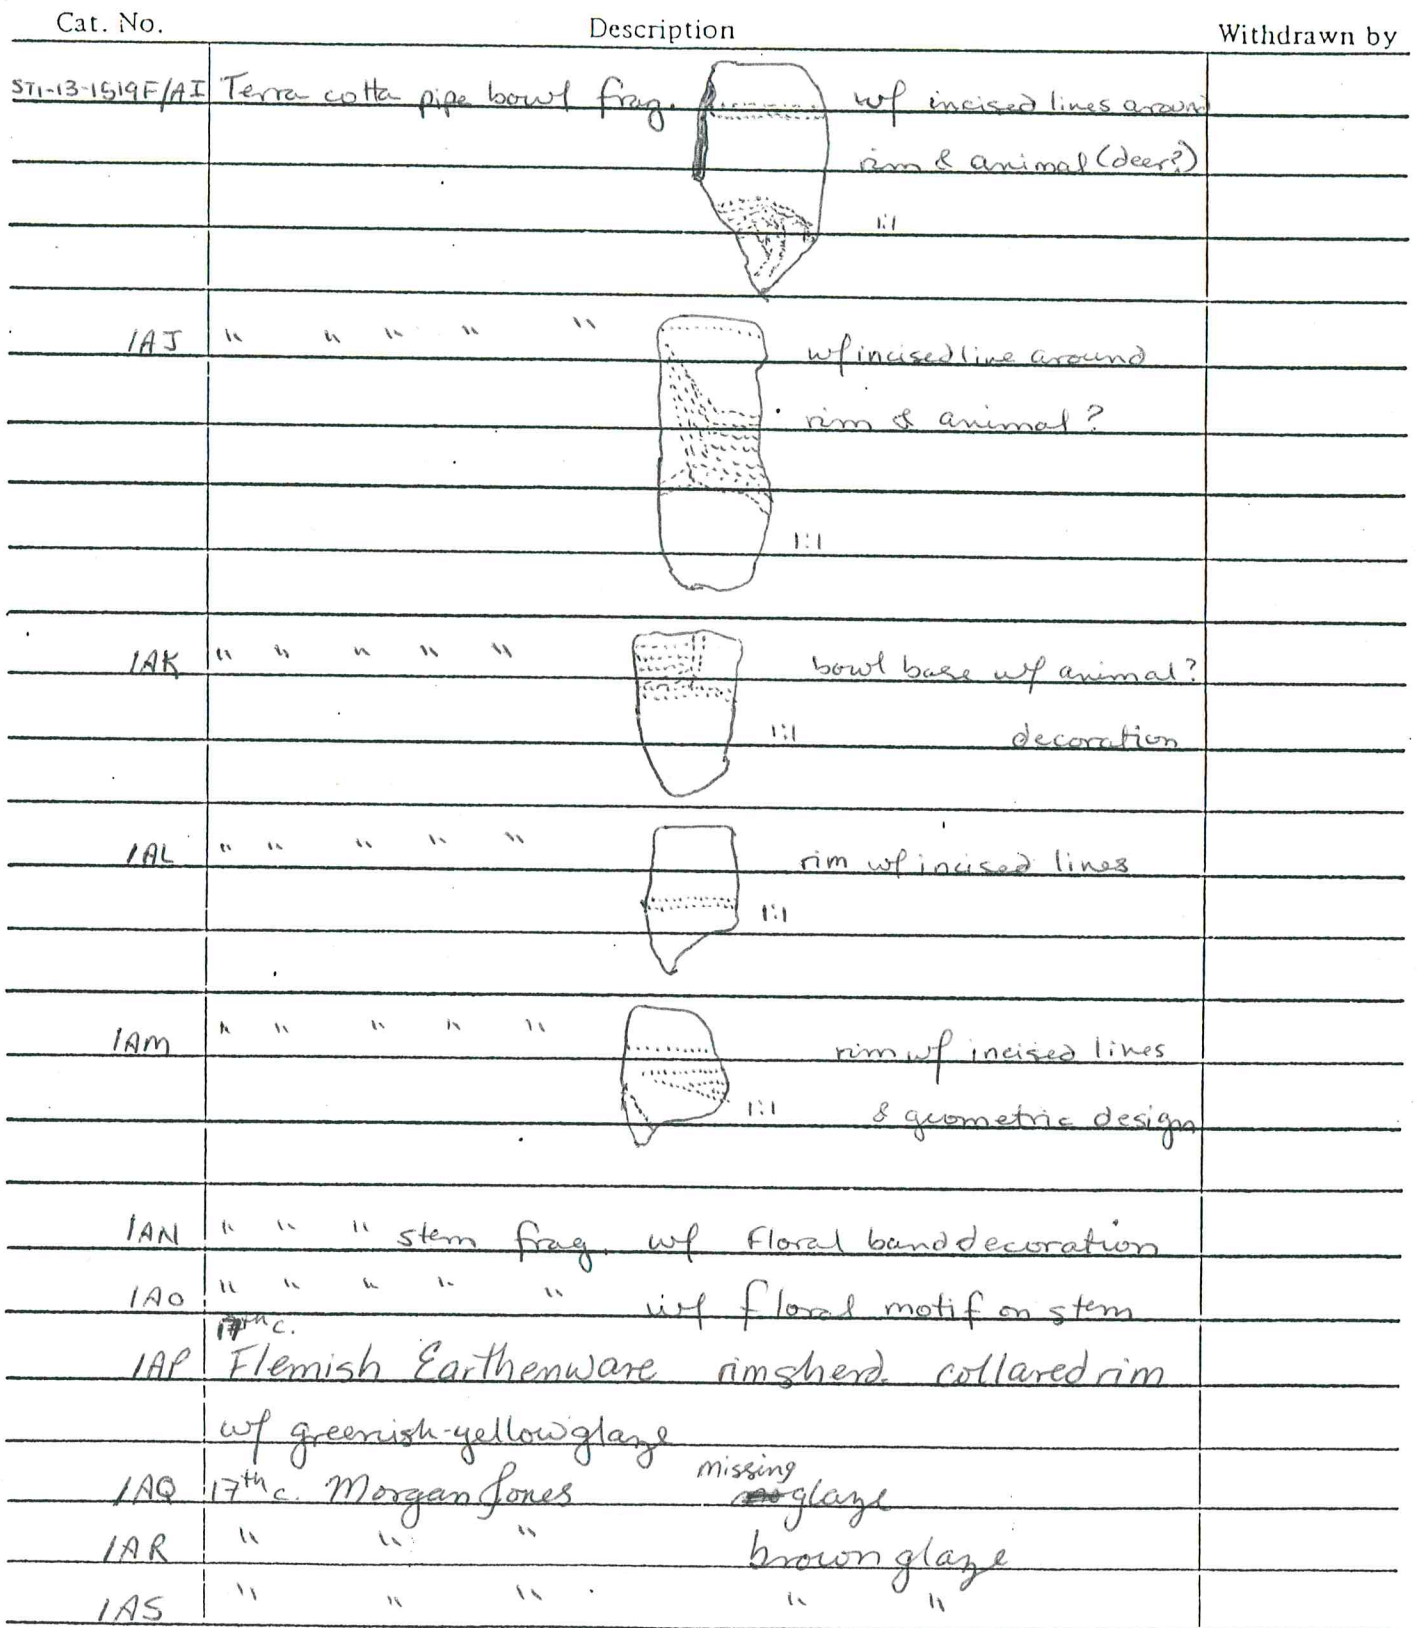 Cat. No. Description Withdrawn by
ST1-13-1519F/AI Terra cotta pipe bowl frag. w/ incised lines around
rim & animal (deer?)
1:1
/AJ " " " " " w/ incised line around
rim & animal?
1:1
/AK " " " " " bowl base w/ animal?
1:1 decoration
/AL " " " " " rim w/ incised lines
1:1
/AM " " " " " rim w/ incised lines
1:1 & geometric design
/AN " " " stem frag. w/ Floral band decoration
/AO " " " " " w/ floral motif on stem
17th c.
/AP Flemish Earthenware rimsherd collared rim
w/ greenish-yellow glaze
missing
/AQ 17th c. Morgan Jones glaze
/AR " " " brown glaze
/AS " " " " "